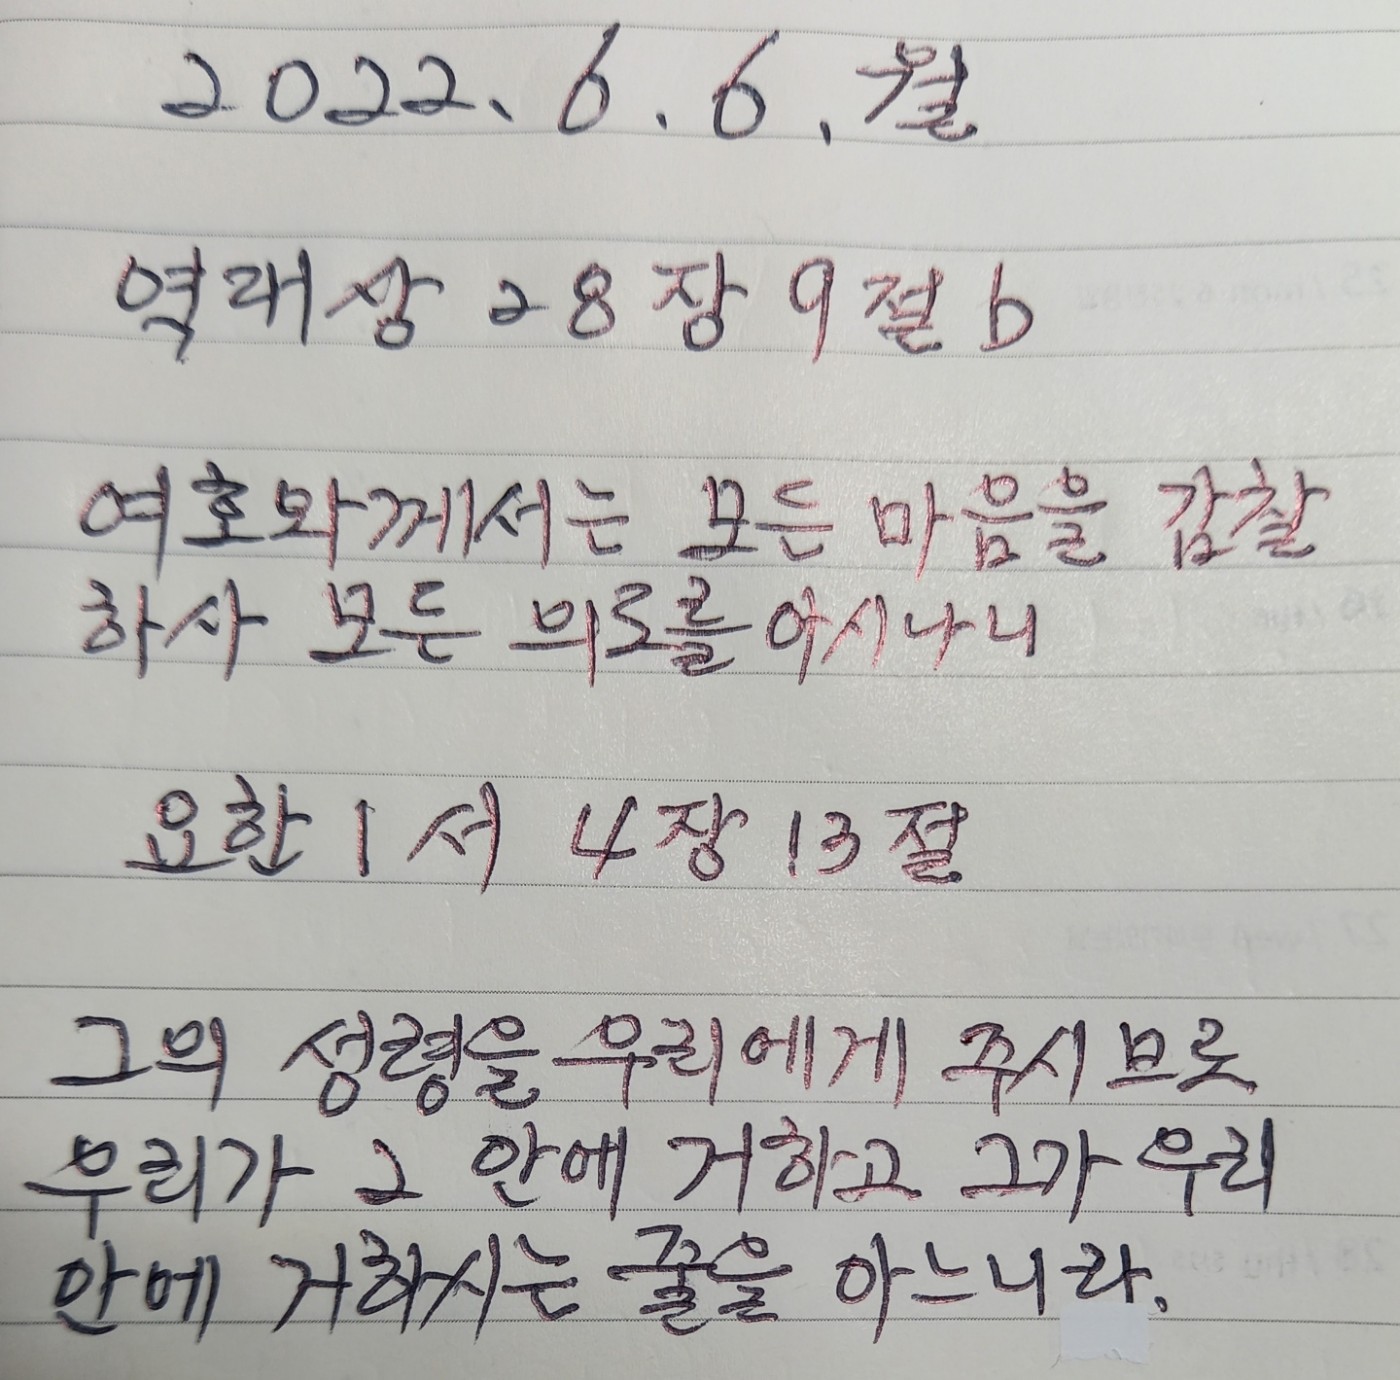 2022. 6. 6. 월
역대상 28장 9절 b
여호와께서는 모든 마음을 감찰
하사 모든 의도를 아시나니
요한 1서 4장 13절
그의 성령을 우리에게 주시므로
우리가 그 안에 거하고 그가 우리
안에 거하시는 줄을 아느니라.